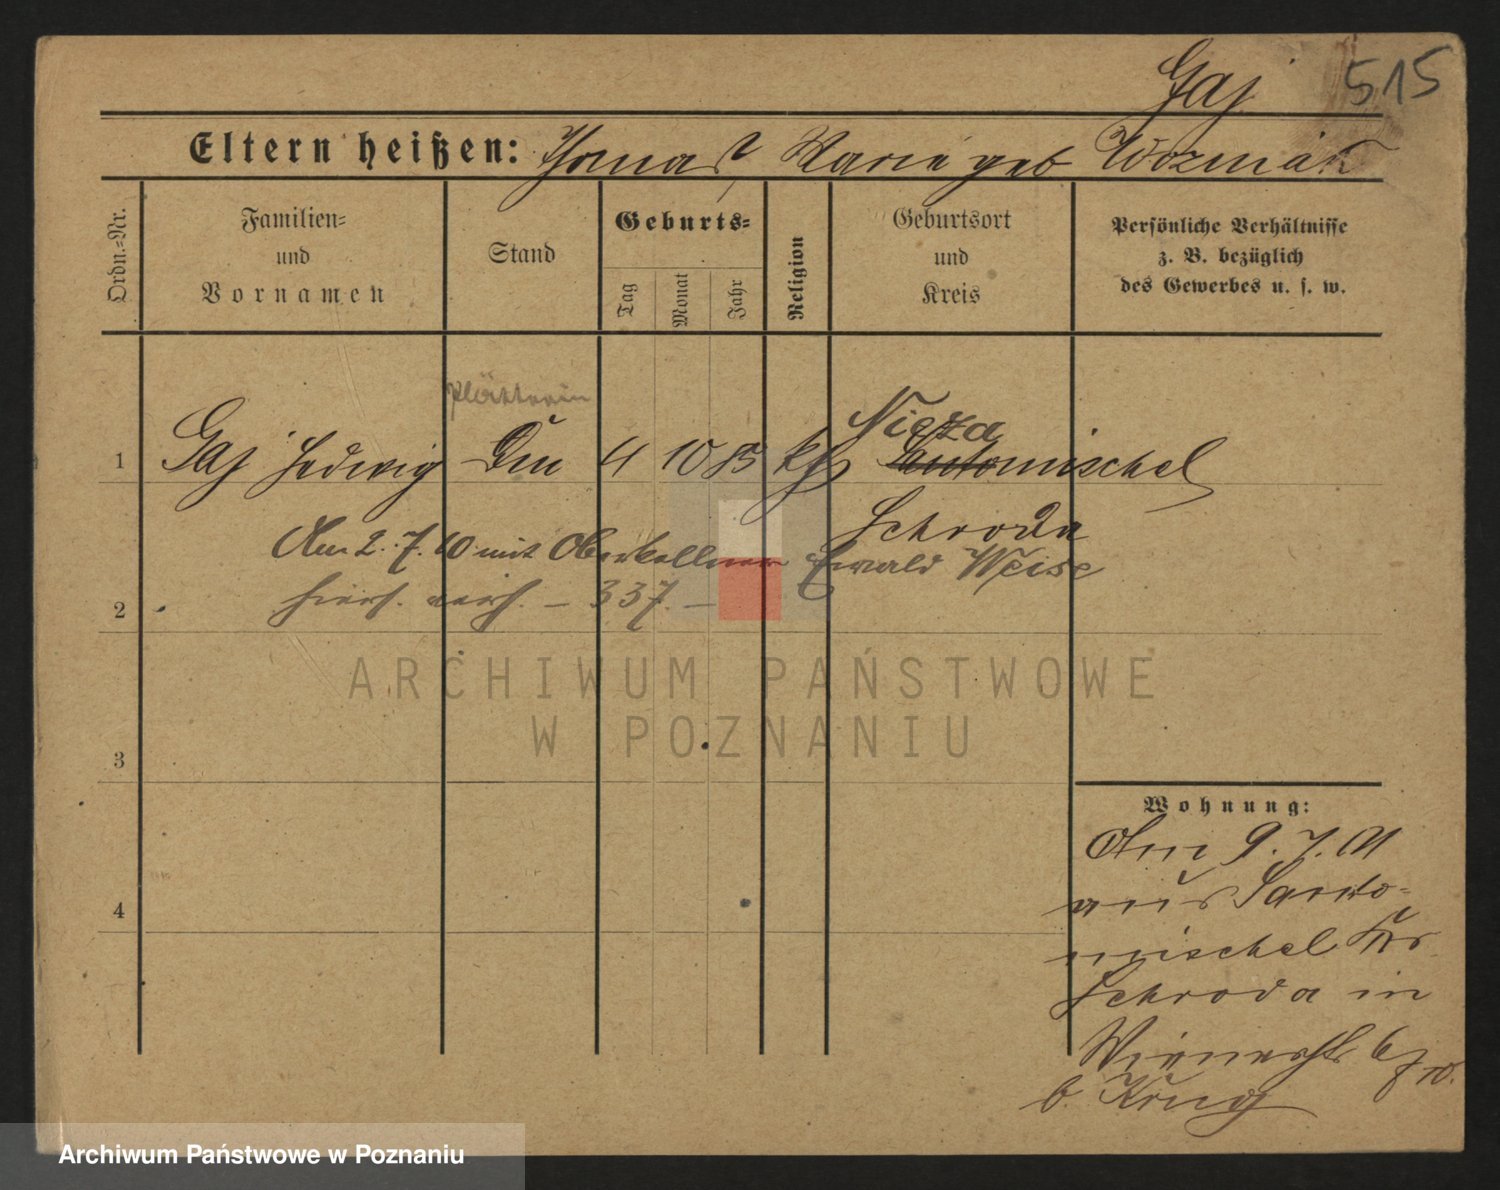 Gaj 515
Eltern heißen: Thomas Marie geb Wozniak
Ordn.=Nr.
Familien=
und
Vornamen
Stand
Geburts=
Tag
Monat
Jahr
Religion
Geburtsort
und
Kreis
Persönliche Verhältnisse
z. B. bezüglich
des Gewerbes u. s. w.
Plätterin
Nieza
1 Gaj Hedwig 4 10 85 kth
Schroda
Am 2.7.10 mit Oberkellner Ewald Weise
hiers. verh. – 337. –
2
ARCHIWUM PAŃSTWOWE
W POZNANIU
3
Wohnung:
Am 9.7.01
aus Santo=
mischel Kr
4
Schroda in
b. Krug
Archiwum Państwowe w Poznaniu